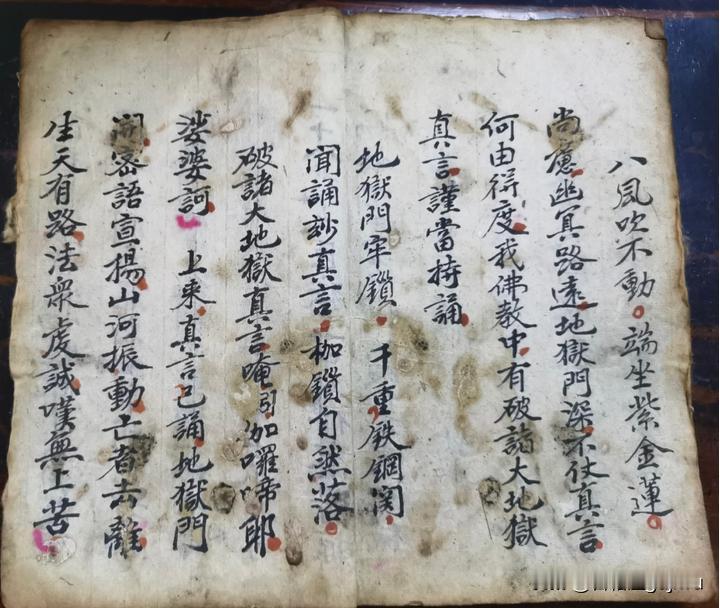 八風吹不動。端坐紫金蓮。
尚慮幽冥路遠。地獄門深。不仗真言
何由得度。我佛教中。有破諸大地獄
真言。謹當持誦。
地獄門牢鎖。千重鉄鋼関
聞誦妙真言。枷鎖自然落。
破諸大地獄真言。唵引伽囉啼耶。
娑婆訶 上来真言已誦。地獄門
開。密語宣揚。山河振動。亡者去離。
生天有路。法衆虔誠嘆無上苦